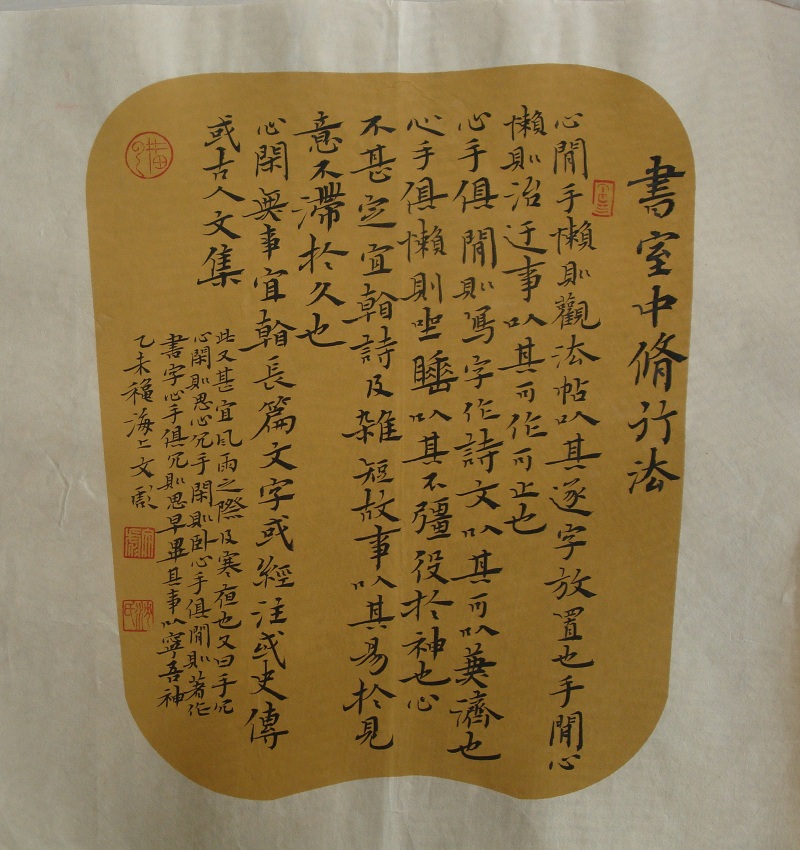 書室中脩行法
心閒手懶則觀法帖以其逐字放置也手閒心
懶則治迂事以其可作可止也
心手俱閒則寫字作詩文以其可以兼濟也
心手俱懶則坐睡以其不彊役於神也心
不甚定宜翰詩及雜短故事以其易於見
意不滯於久也
心閑無事宜翰長篇文字或經注或史傳
或古人文集
此又甚宜風雨之際及寒夜也又曰手冗
心閑則思心冗手閑則臥心手俱閒則著作
書字心手俱冗則思早畢其事以寧吾神
乙未 海上文